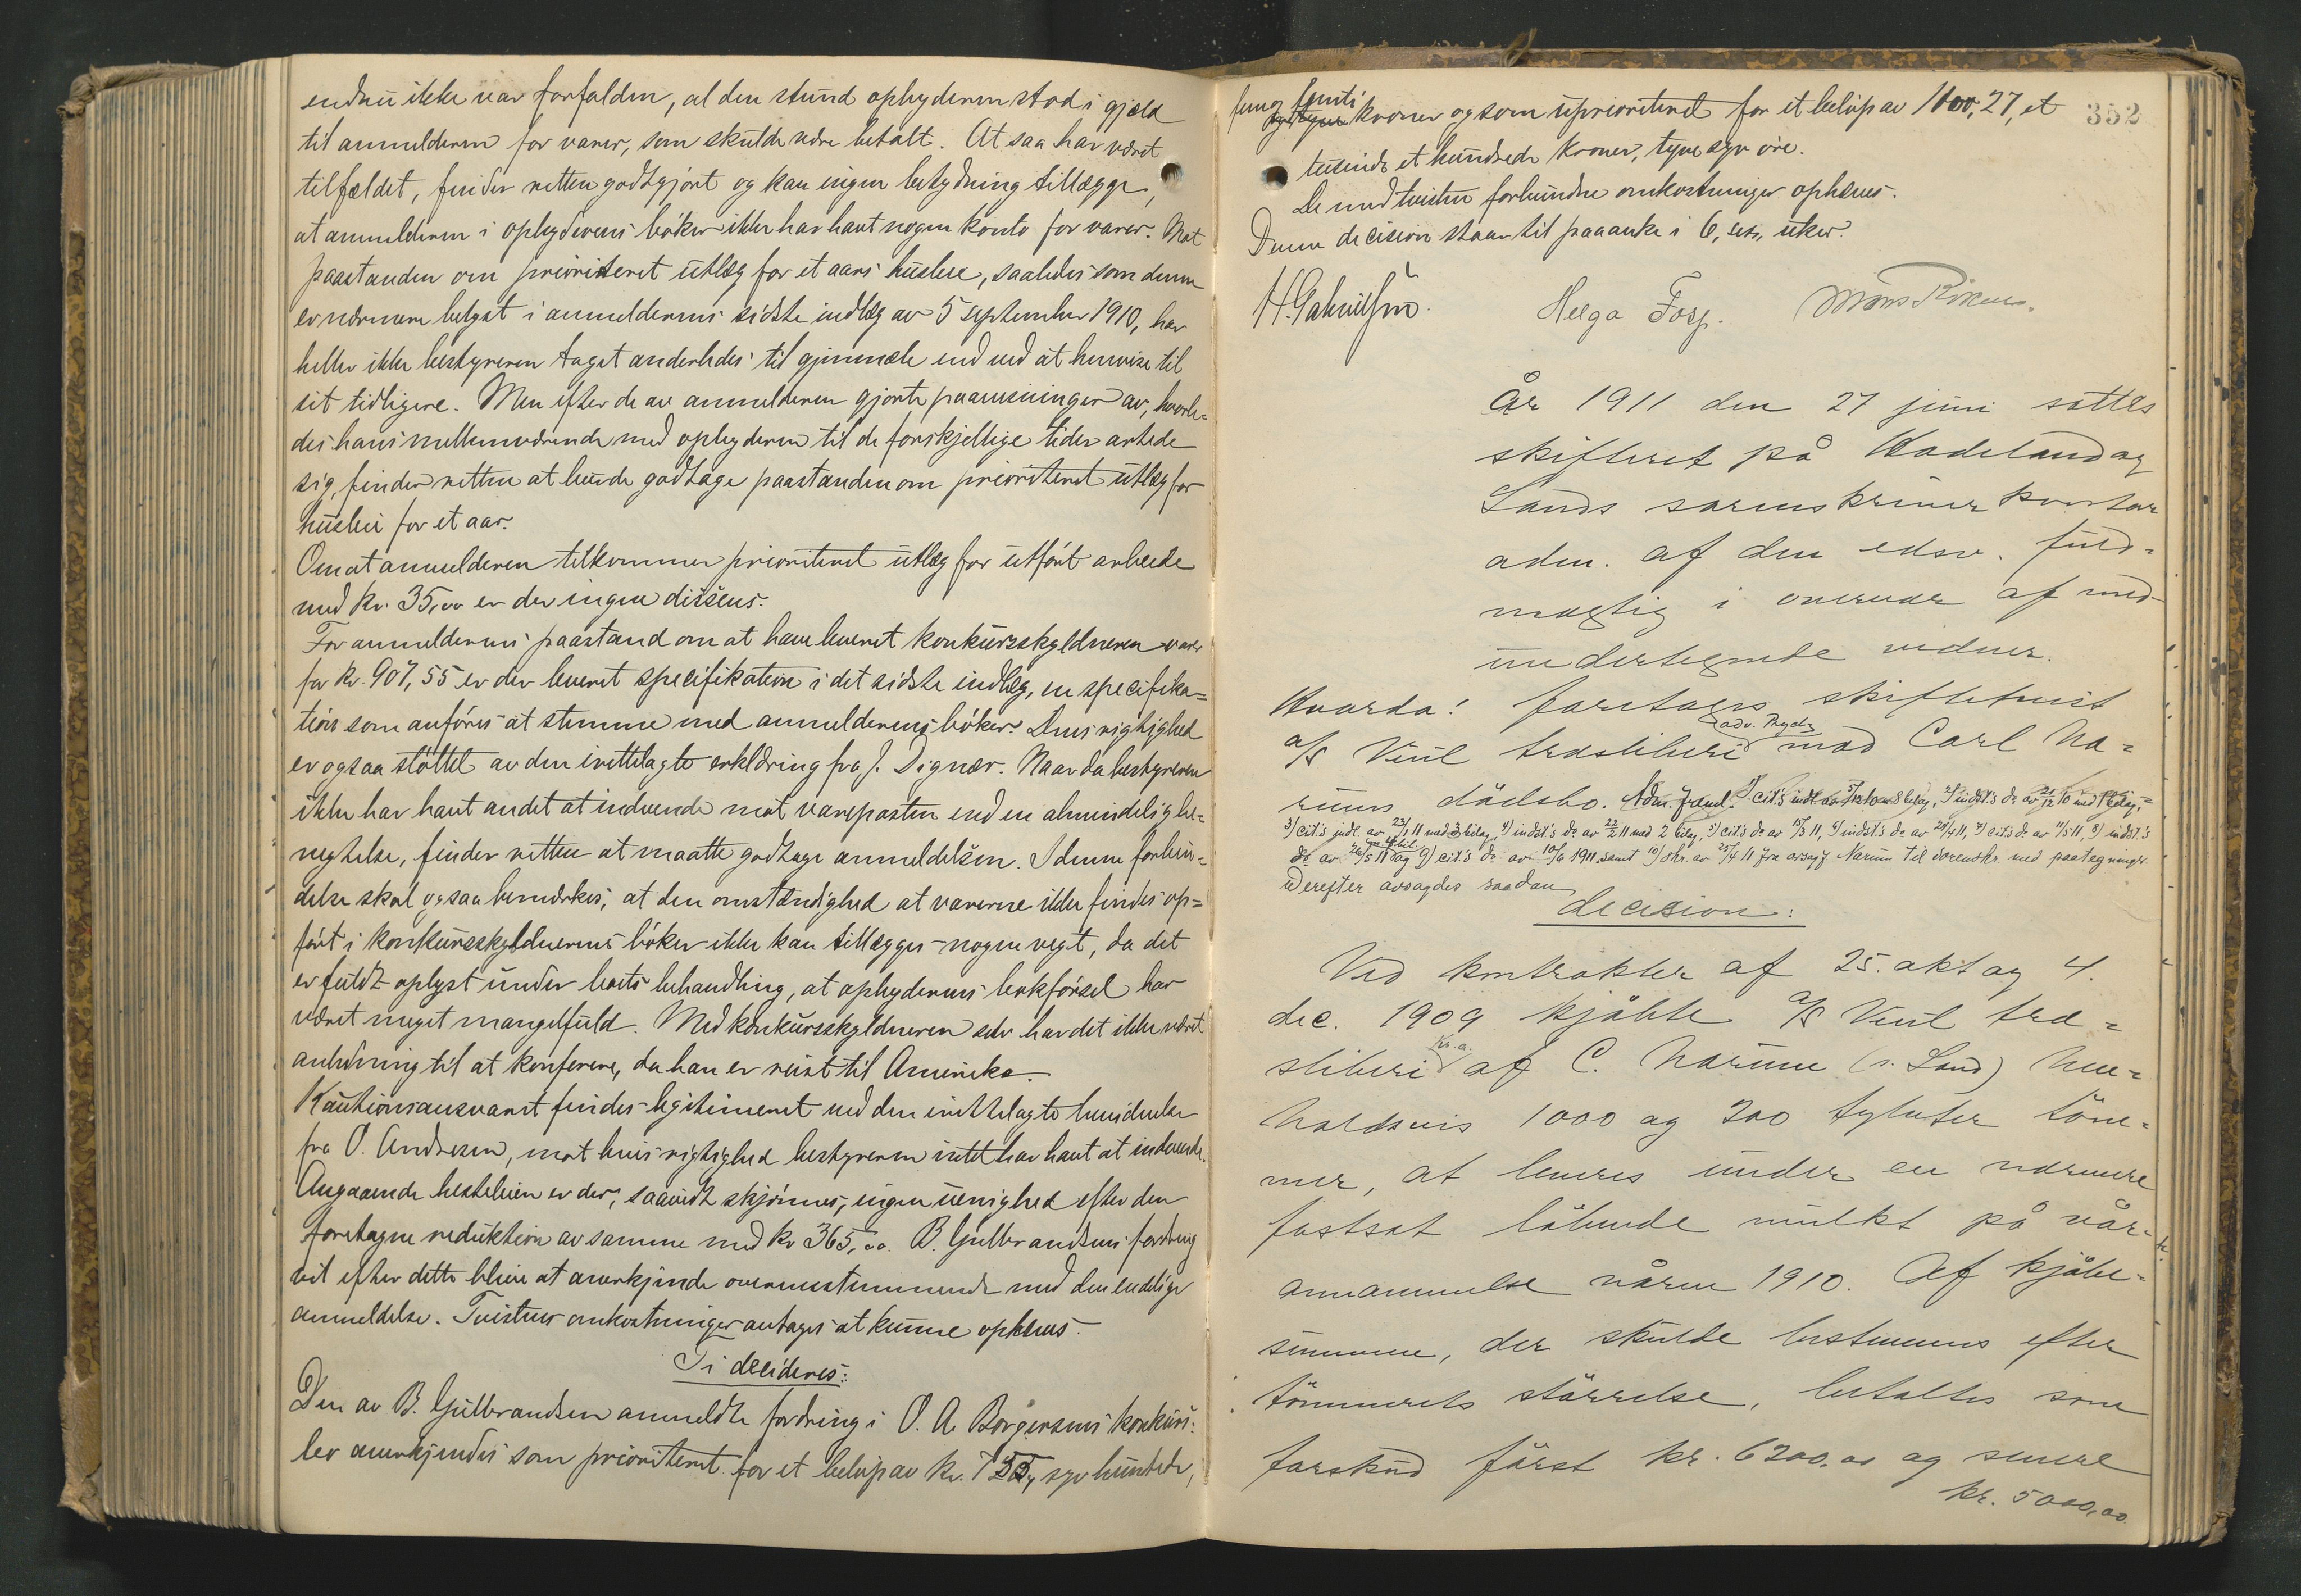 endnu ikke var forfalden, al den stund opbyderen stod i gjæld
til anmelderen for varer, som skulde være betalt. At saa har været
tilfældet, finder retten godtgjort og kan ingen betydning tillægge,
at anmelderen i opbyderens bøker ikke har havt nogen konto for varer. Mot
paastanden om prioriteret utlæg for et aars husleie, saaledes som denne
er nærmere belyst i anmelderens sidste indlæg av 5 september 1910, har
heller ikke bestyreren taget anderledes til gjenmæle end ved at henvise til
sit tidligere. Men efter de av anmelderen gjorte paavisninger av, hvorle=
des hans mellemværende med opbyderen til de forskjellige tider artede
sig, finder retten at burde godtage paastanden om prioriteret utlæg for
husleie for et aar.
Om at anmelderen tilkommer prioriteret utlæg for utført arbeide
med kr. 35,00 er der ingen dissens.
For anmelderens paastand om at have leveret konkursskyldneren varer
for kr. 907,55 er der leveret specifikation i det sidste indlæg, en specifika=
tion som anføres at stemme med anmelderens bøker. Dens rigtighed
er ogsaa støttet av den irettelagte erklæring fra J. Dignær. Naar da bestyreren
ikke har havt andet at indvende mot vareposten end en almindelig be=
negtelse, finder retten at maatte godtage anmeldelsen. I denne forbin=
delse skal ogsaa bemerkes, at den omstændighed at varerne ikke findes op=
ført i konkursskyldnerens bøker ikke kan tillægges nogen vegt, da det
er fuldt oplyst under boets behandling, at opbyderens bokførsel har
været meget mangelfuld. Med konkursskyldneren selv har det ikke været
anledning til at konferere, da han er reist til Amerika.
Kautionsansvaret findes legitimeret ved den irettelagte henvendelse
fra O. Andresen, mot hvis rigtighed bestyreren intet har havt at indvende.
Angaaende hesteleien er der, saavidt skjønnes, ingen uenighed efter den
foretagne reduktion av samme med kr 365,00. B. Gulbrandsens fordring
vil efter dette blive at anerkjende overensstemmende med den endelige
anmeldelse. Tvistens omkostninger antages at kunne ophæves.
Ti decideres:
Den av B. Gulbrandsen anmeldte fordring i O. A. Borgersens konkurs=
bo anerkjendes som prioriteret for et beløp av kr. 755, syv hundrede,
352
fem og femti kroner og som uprioriteret for et beløp av 1100,27, et
tusinde et hundrede kroner, tyve syv øre.
De med tvisten forbundne omkostninger ophæves.
Denne decision staar til paaanke i 6, sex, uker.
H. Gabrielsen. Helga Fosp.
År 1911 den 27 juni sattes
skifteret på Hadeland og
Lands sorenskriver kontor
adm. af den edsv. fuld=
mægtig i overvær af med-
undertegnede vidner.
Hvorda: foretages skiftetvist
adv. Rygh
a/s Viul træsliberi mod Carl Na=
rums dødsbo. Adm. freml. 1) cit.s indl. av med 8 bilag, 2) indst.s do av 21/12 10 med 1 bilag,
3) cit.s indl. av 23/1 11 med 3 bilag, 4) indst.s do av 22/2 11 med 2 bilag, 5) cit.s do av 15/3 11, 6) indst.s do av 28/4 11, 7) cit.s do av 4/5 11, 8) indst.s
do av 26/5 11 og 9) cit.s do av 10/6 1911 samt 10) skr. av 25/4 11 fra Narum til sorenskr. med paategninger.
hvorefter avsagdes saadan
decision:
Ved kontrakter af 25. okt og 4.
dec. 1909 kjøbte a/s Viul træ=
Kr.a.
sliberi af C. Narum (s. Land) hen=
holdsvis 1000 og 200 tylvter tøm=
mer, at leveres under en nærmere
fastsat løbende mulkt på vår=
annammelse våren 1910. Af kjøbe=
summen, der skulde bestemmes efter
tømmerets størrelse, betaltes som
forskud først kr. 6200.00 og senere
kr. 5000,00